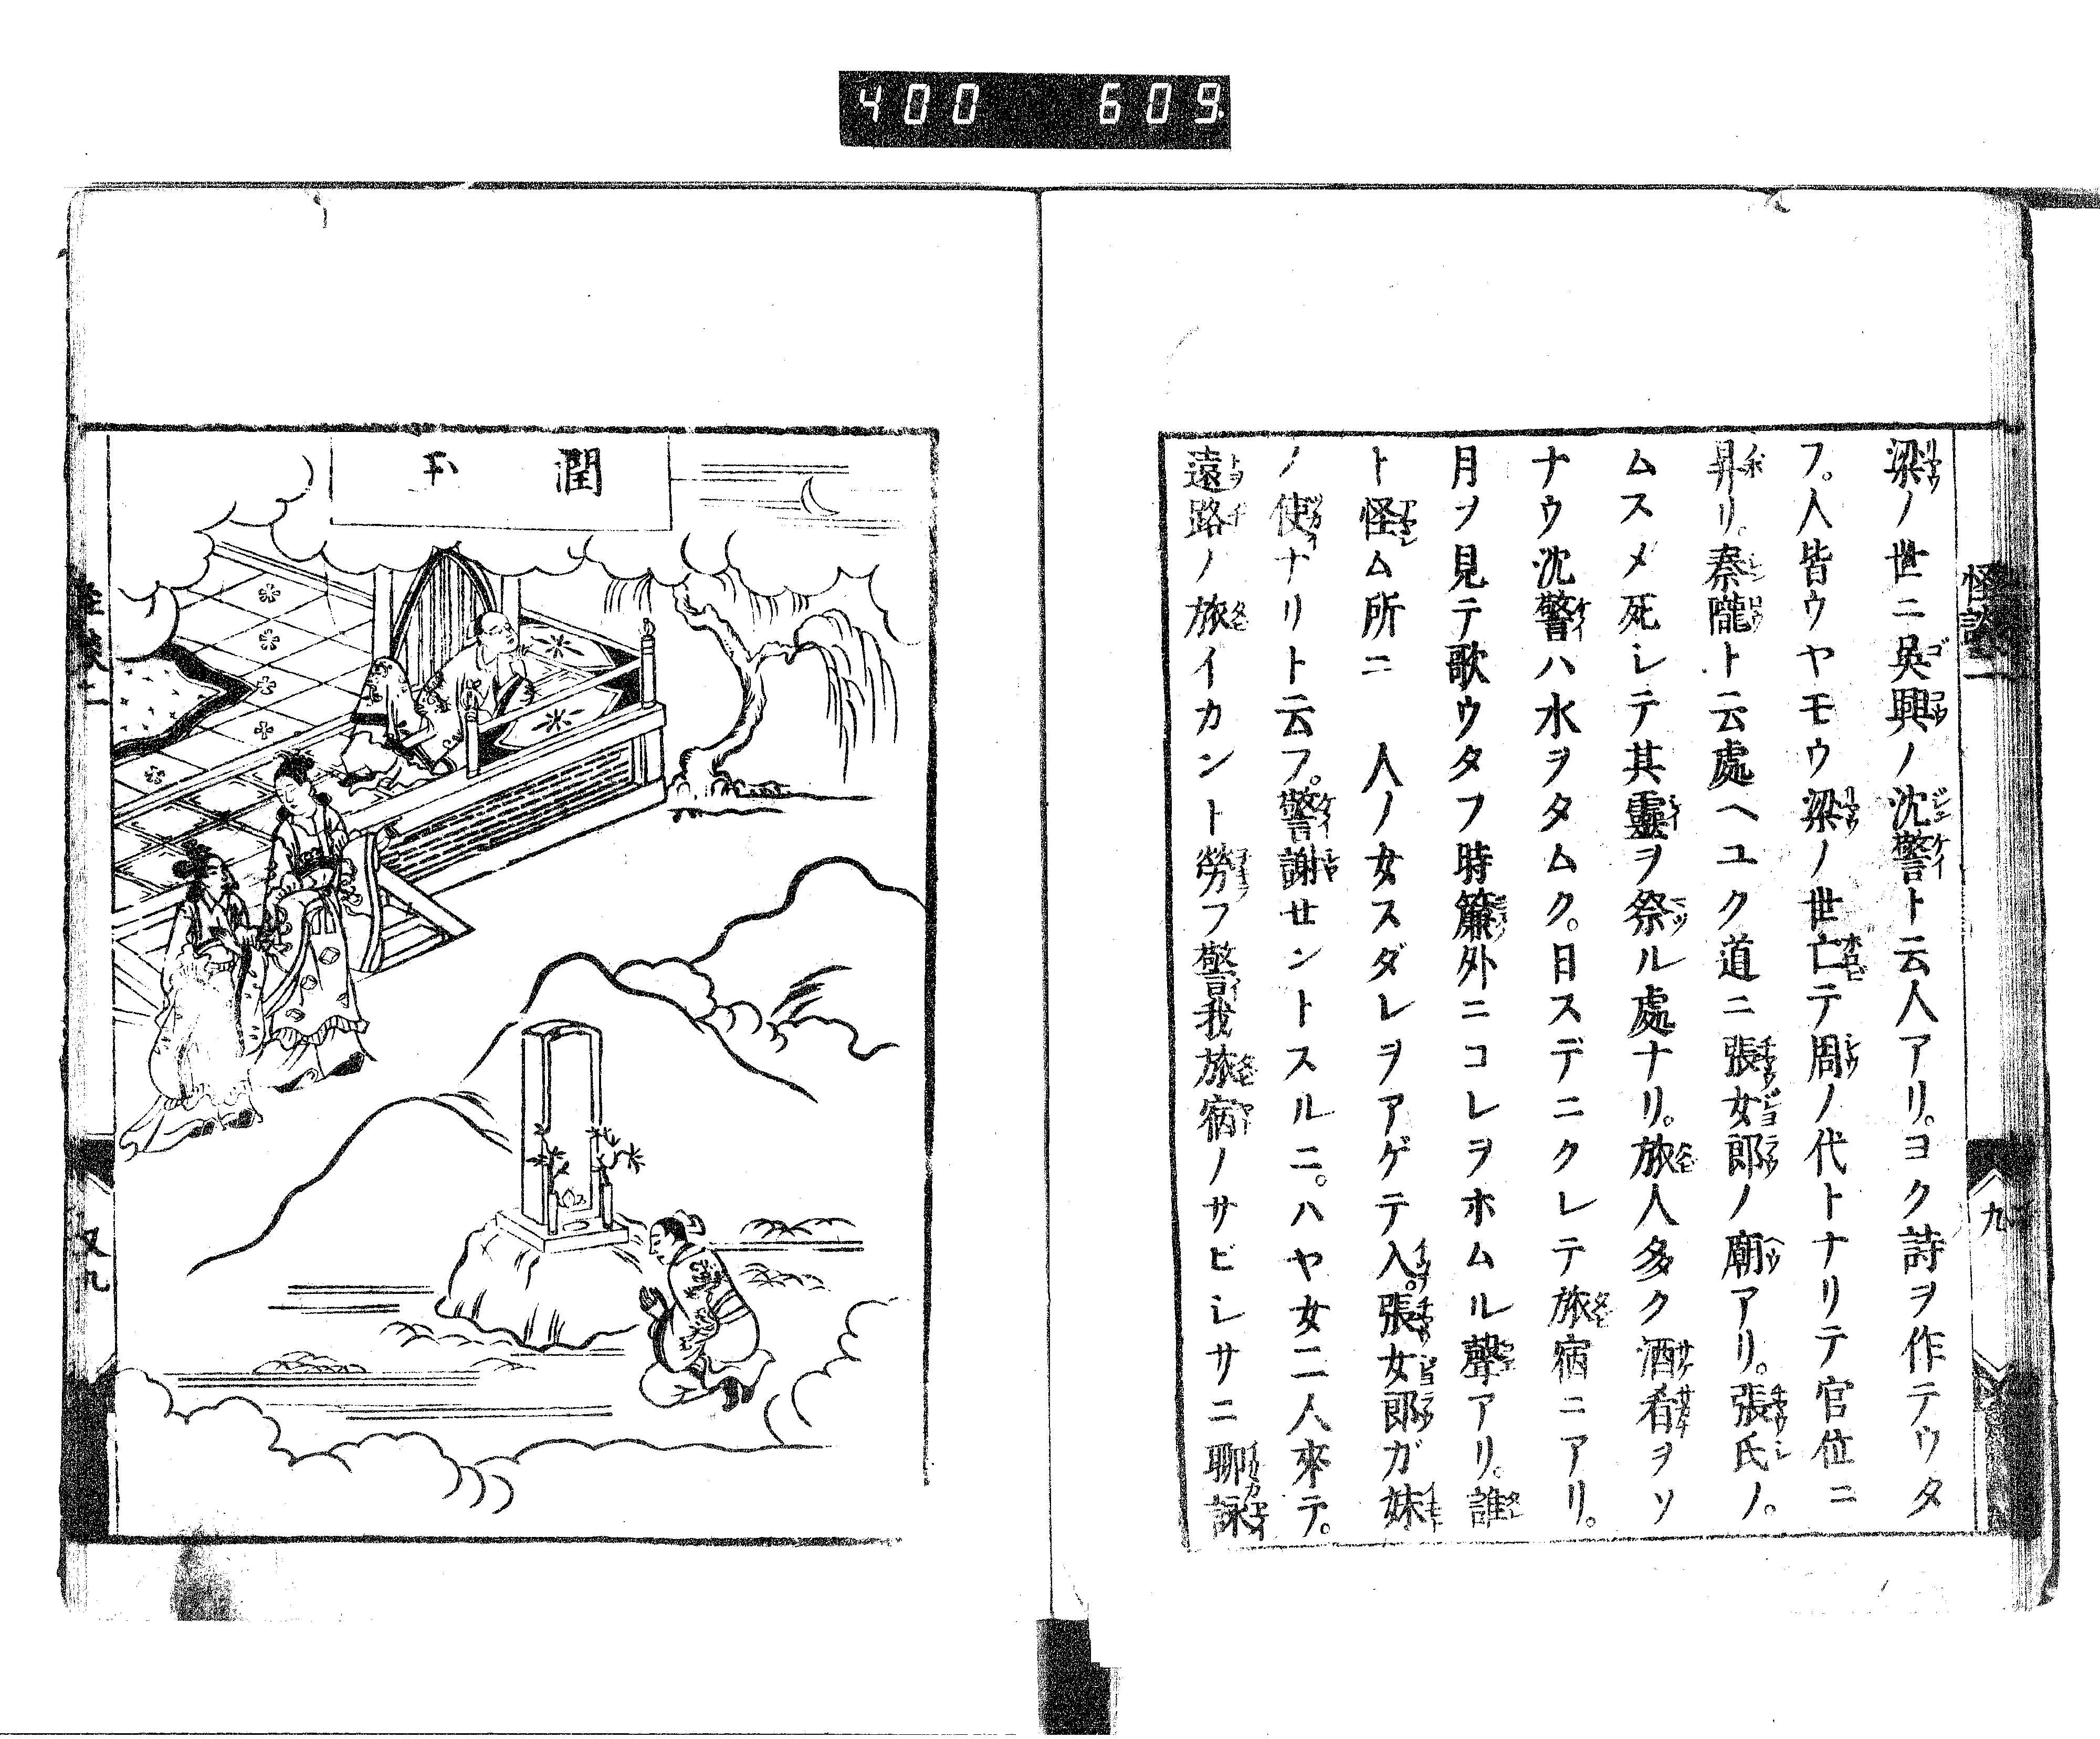 400 609
怪談二
九
梁ノ世ニ吳興ノ沈警ト云人アリ。ヨク詩ヲ作テウタ
フ。人皆ウヤモウ梁ノ世亡テ周ノ代トナリテ官位ニ
昇リ。秦隴ト云處ヘユク道ニ張女郎ノ廟アリ。張氏ノ。
ムスメ死シテ其靈ヲ祭ル處ナリ。旅人多ク酒肴ヲソ
ナウ沈警ハ水ヲタムク。日スデニクレテ旅宿ニアリ。
月ヲ見テ歌ウタフ時簾外ニコレヲホムル聲アリ。誰
ト怪ム所ニ 人ノ女スダレヲアゲテ入。張女郎ガ妹
ノ使ナリト云フ。警謝セントスルニ。ハヤ女二人來テ。
遠路ノ旅イカント勞フ警我旅宿ノサビシサニ聊詠
潤玉
又九